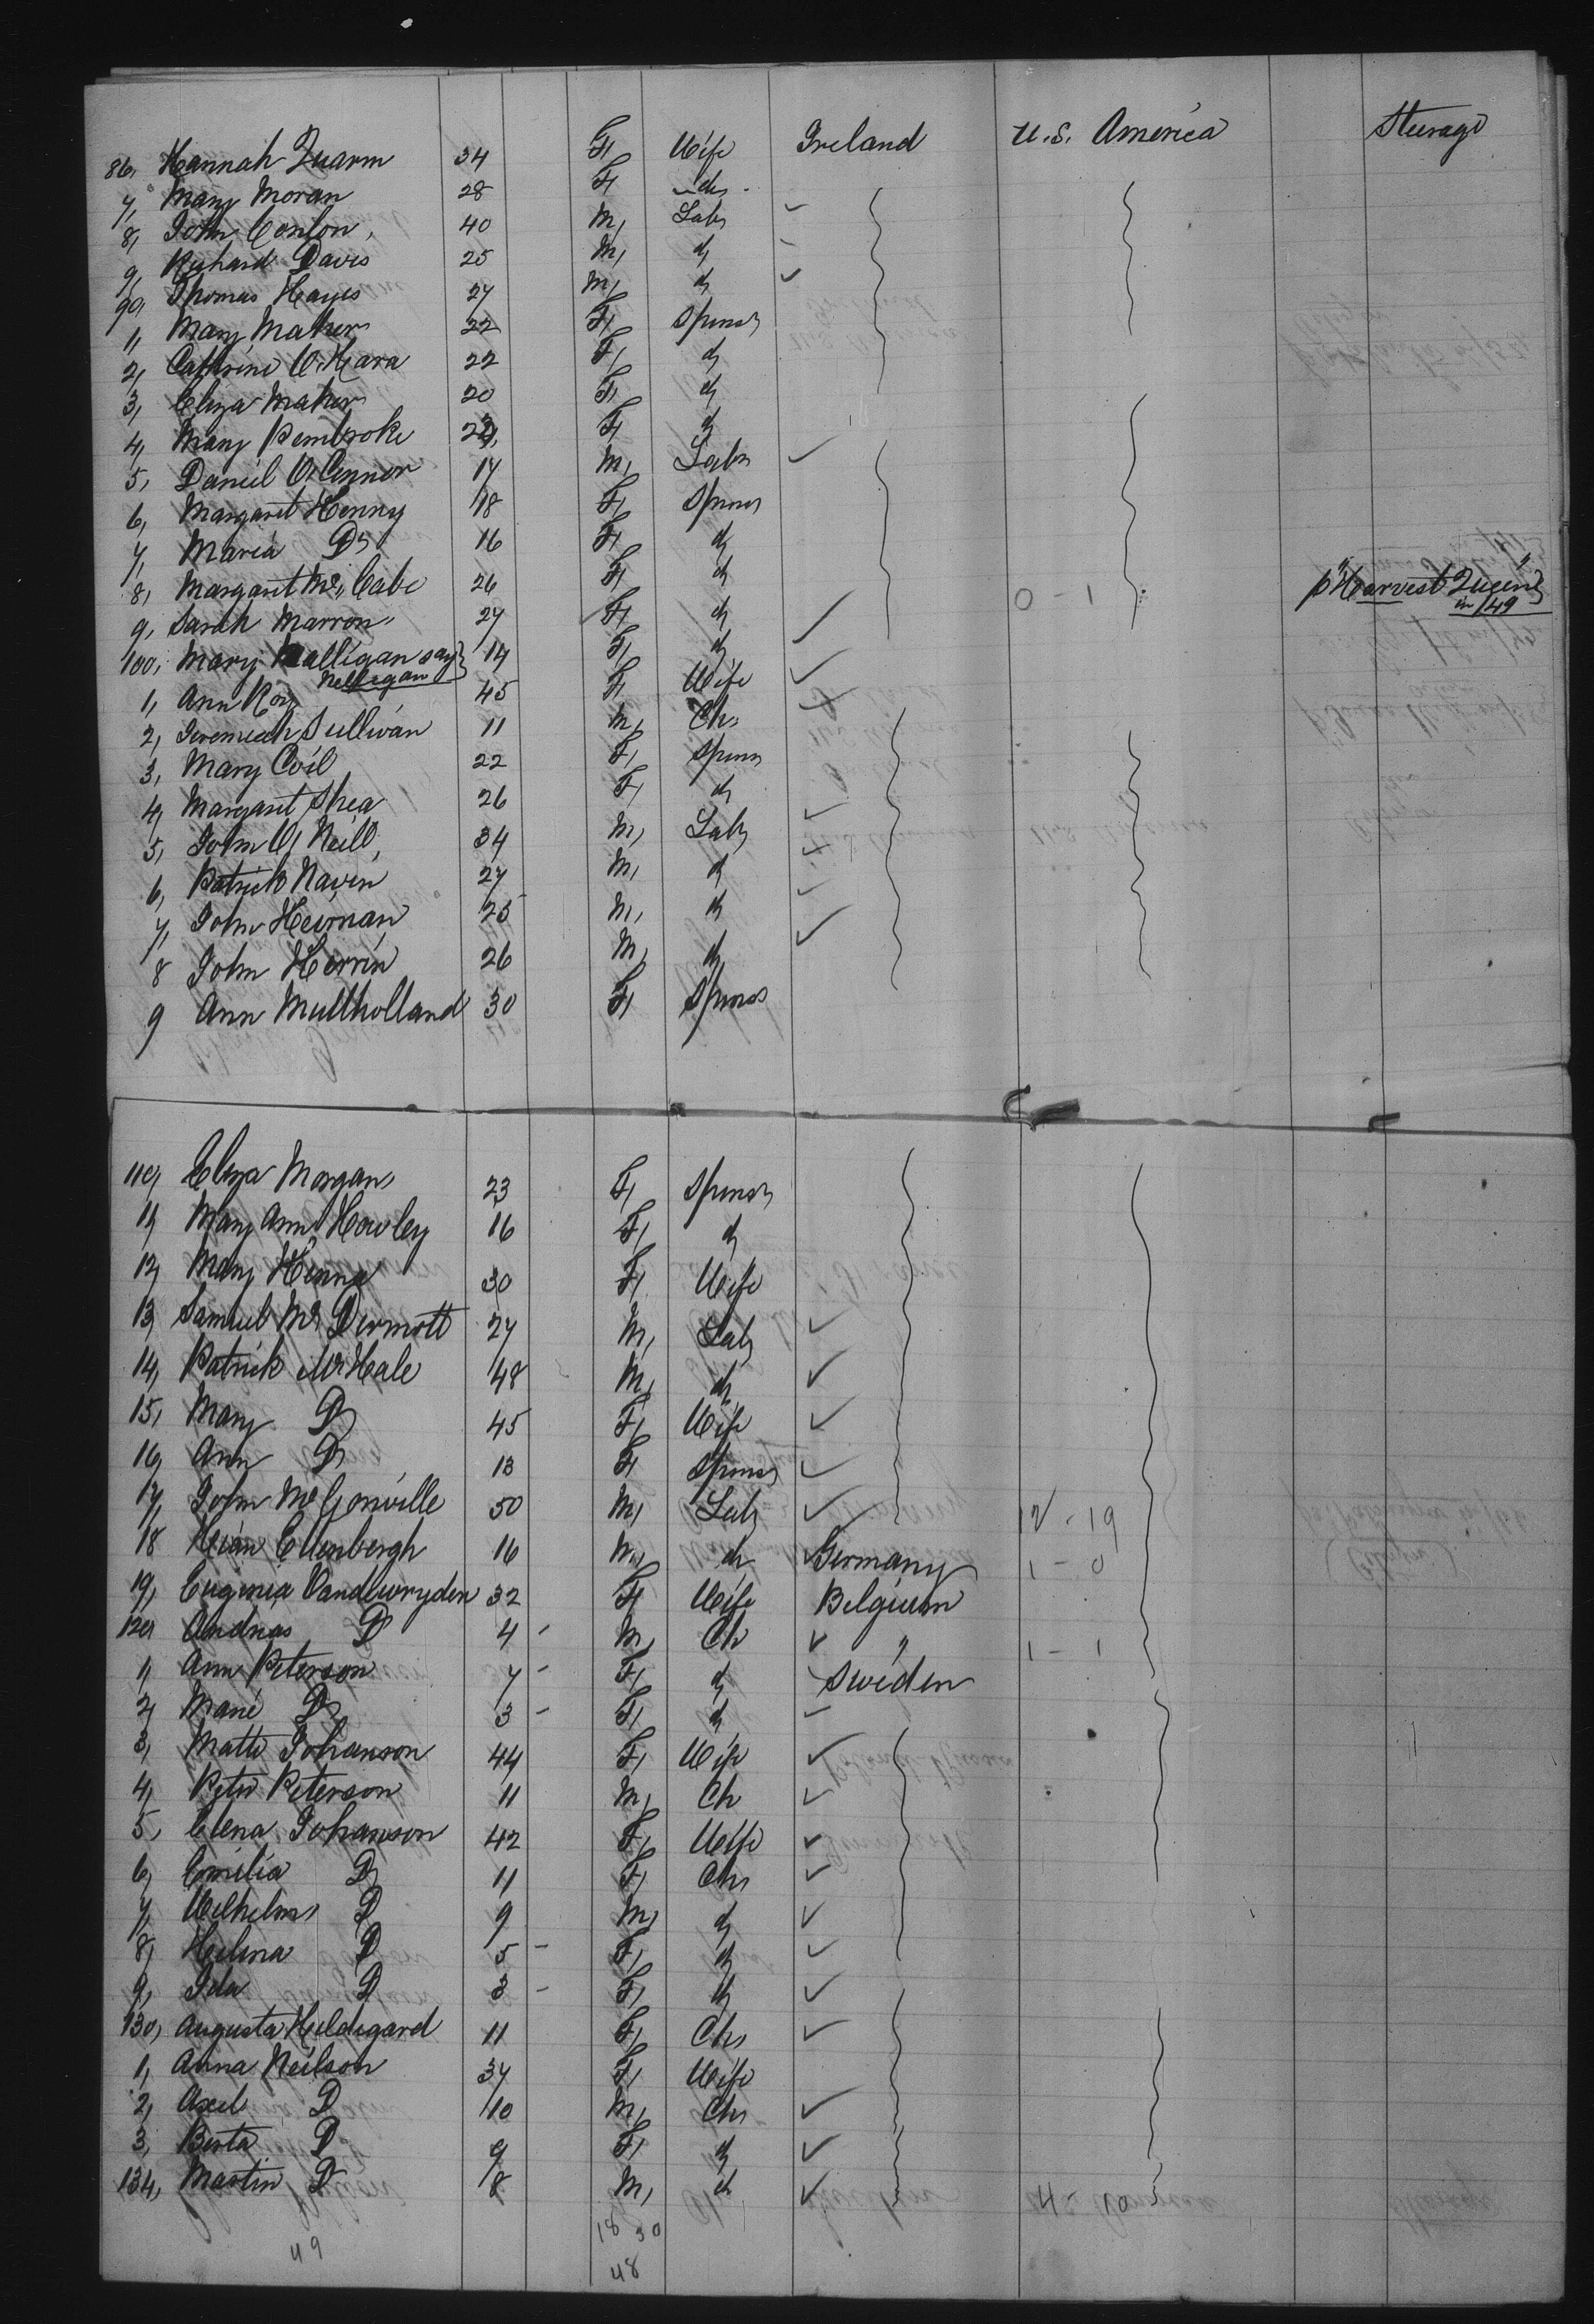 86, Hannah Quarm 34 F, Wife Ireland U.S. America Steerage
7, Mary Moran 28 F, do
8, John Conlon 40 M, Labr
9, Richard Davis 25 M, do
90, Thomas Hayes 27 M, do
1, Mary Maher 22 F, Spinsr
2, Cathrine O'Hara 22 F, do
3, Eliza Maher 20 F, do
4, Mary Pembroke F, do
5, Daniel O'Connor 17 M, Labr
6, Margaret Henny 18 F, Spinsr
7, Maria Do 16 F, do
8, Margaret Mc Cabe 26 F, do 0 - 1 p "Harvest Queen"
in /49
9, Sarah Marron 27 F, do
100, Mary Malligan say 14 F, do
Nelligan
1, Ann Roy 45 F, Wife
2, Jeremiah Sullivan 11 M, Ch
3, Mary Coil 22 F, Spinsr
4, Margaret Shea 26 F, do
5, John O'Neill 34 M, Labr
6, Patrick Naven 27 M, do
7, John Heirnan 25 M, do
8 John Herrin 26 M, do
9 Ann Mullholland 30 F, Spinsr
110, Eliza Morgan 23 F, Spinsr
11, Mary Ann Howley 16 F, do
12, Mary Henna 30 F, Wife
13, Samuel Mc Dermott 27 M, Labr
14, Patrick McHale 48 M, do
15, Mary Do 45 F, Wife
16, Ann Do 13 F, Spinsr
17, John McGonville 50 M, Labr 12 - 19
18 Ellenbergh 16 M, do Germany 1 - 0
19, Eugenia Vandewryden 32 F, Wife Belgium
120 Andreas Do 4 - M, Ch " 1 - 1
1, Ann Peterson 7 - F, do Sweden
2, Marie Do 3 - F, do
3, Matte Johanson 44 F, Wife
4, Peter Peterson 11 M, Ch
5, Elena Johanson 42 F, Wife
6, Emilia Do 11 F, Ch
7, Wilhelm Do 9 M, do
8, Helena Do 5 - F, do
9, Ida Do 3 - F, do
130, Augusta Heldegard 11 F, Ch
1, Anna Neilson 37 F, Wife
2, Axel Do 10 M, Ch
3, Berta Do 9 F, do
134, Martin Do 8 M, do 4 - 10
18 30
49 48